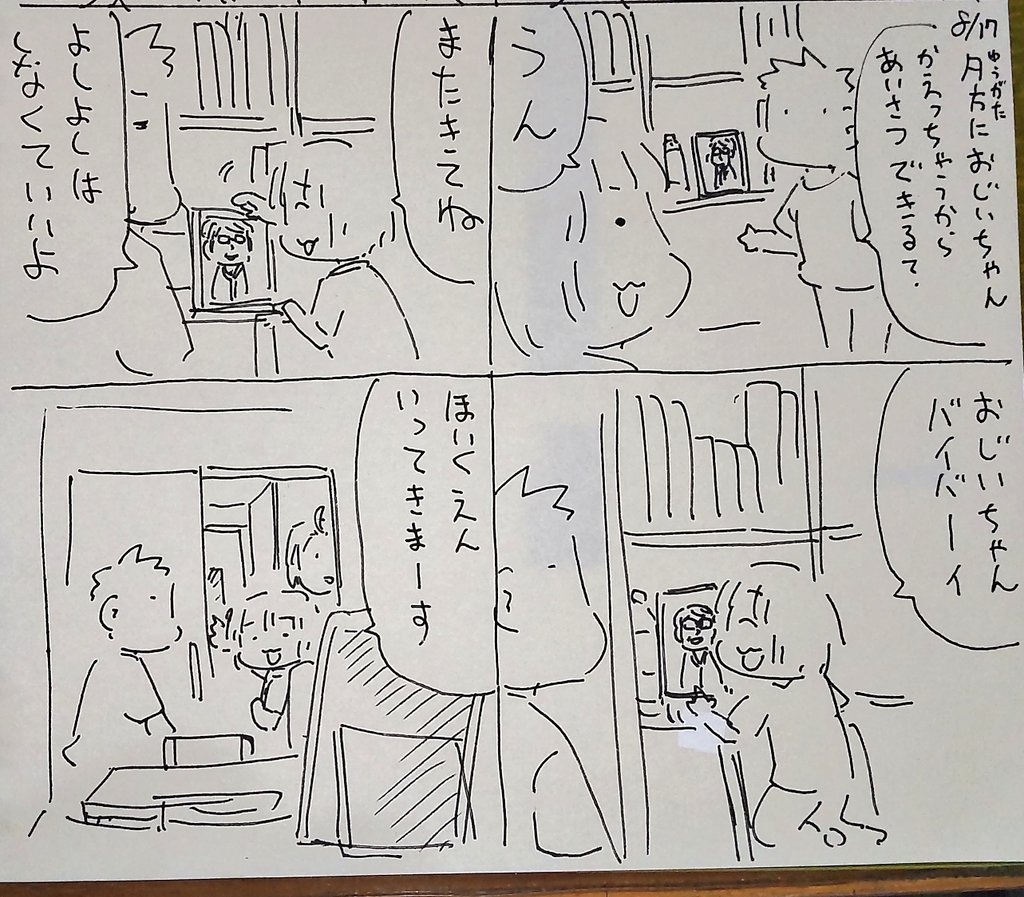 8/17
夕方におじいちゃん
ゆうがた
かえっちゃうから
あいさつできるて.
うん
またきてね
よしよしは
しなくていいよ
おじいちゃん
バイバーイ
ほいくえん
いってきまーす